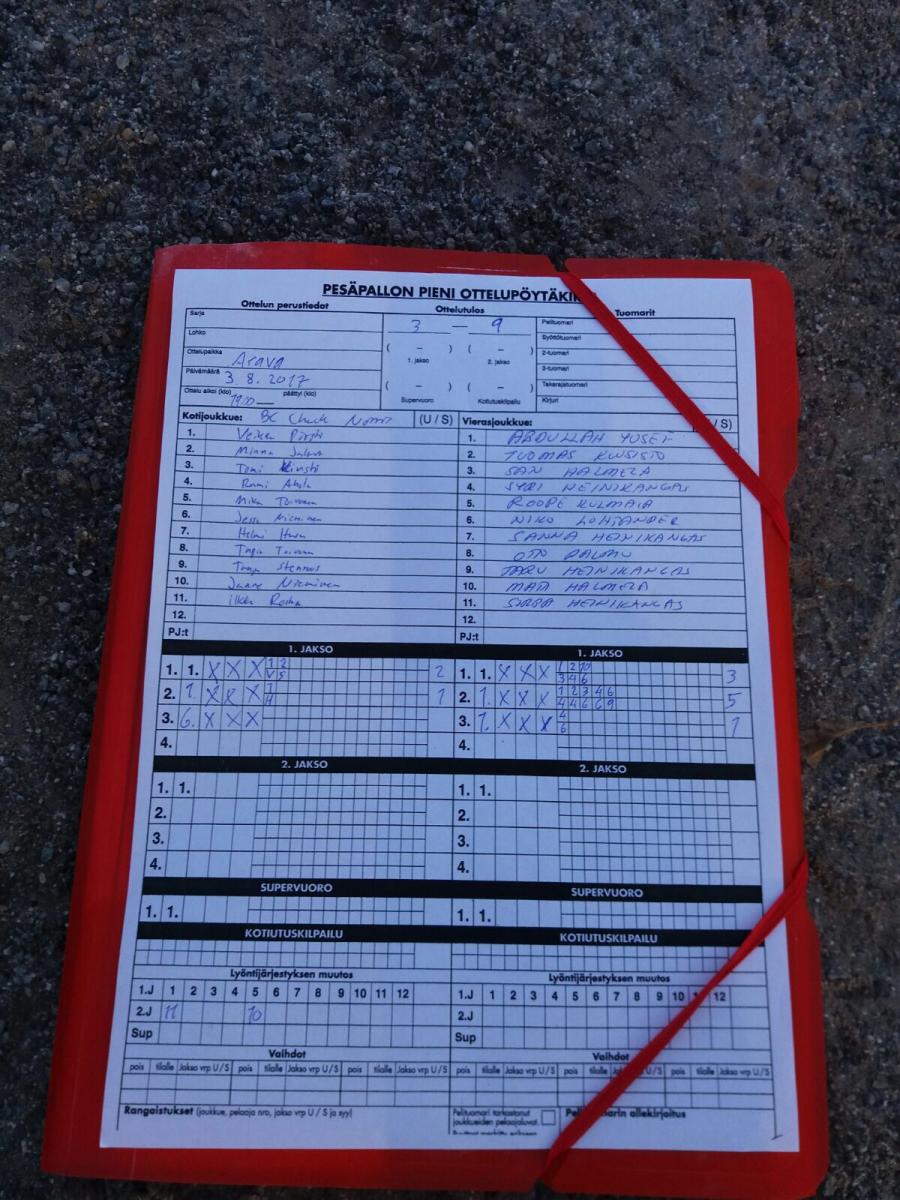 PESÄPALLON PIENI OTTELUPÖYTÄKI
Ottelun perustiedot
Ottelutulos
Tuomarit
Sarja
Lohko
Ottelupaikka Arava
Päivämäärä 3.8.2017
Ottelu alkoi (klo) 1900 päättyi (klo)
3 — 9
( – ) ( – )
1. jakso 2. jakso
( – ) ( – )
Supervuoro Kotiutuskilpailu
Pelituomari
Syöttötuomari
2-tuomari
3-tuomari
Takarajatuomari
Kirjuri
Kotijoukkue: BC Chuck Norris (U / S)
1. Veikka
2. Minna
3. Tomi
4. Rami
5. Mika Toivonen
6. Jessi Nieminen
7. Helmi
8. Toivonen
9. Stenroos
10. Janne Nieminen
11. Ilkka
12.
PJ:t
Vierasjoukkue: / S)
1. ABDULLAH YUSEF
2. TUOMAS KUUSISTO
3. SAN HALMELA
4. SYRI HEINIKANGAS
5. ROOPE KULMALA
6. NIKO LOHTANDER
7. SANNA HEINIKANGAS
8. PALMU
9. TARU HEINIKANGAS
10. MATI HALMELA
11. SIRPA HEINIKANGAS
12.
PJ:t
1. JAKSO
1. 1. X X X 1 2 2
V 5
2. 1. X X X 1 1
H
3. 6. X X X
4.
1. JAKSO
1. 1. X X X 1 2 10 3
3 4 6
2. 1. X X X 1 2 3 4 6 5
4 4 6 6 9
3. 1. X X X 4 1
6
4.
2. JAKSO
1. 1.
2.
3.
4.
2. JAKSO
1. 1.
2.
3.
4.
SUPERVUORO
1. 1.
SUPERVUORO
1. 1.
KOTIUTUSKILPAILU
KOTIUTUSKILPAILU
Lyöntijärjestyksen muutos
1.J 1 2 3 4 5 6 7 8 9 10 11 12
2.J 11 10
Sup
Lyöntijärjestyksen muutos
1.J 1 2 3 4 5 6 7 8 9 10 12
2.J
Sup
Vaihdot
pois tilalle Jakso vrp U / S pois tilalle Jakso vrp U / S pois tilalle Jakso vrp U / S
Vaihdot
pois tilalle Jakso vrp U / S pois tilalle Jakso vrp U / S pois tilalle Jakso vrp U / S
Rangaistukset (joukkue, pelaaja nro, jakso vrp U / S ja syy)
Pelituomari tarkastanut
joukkueiden pelaajaluvat.
Pelituomarin allekirjoitus